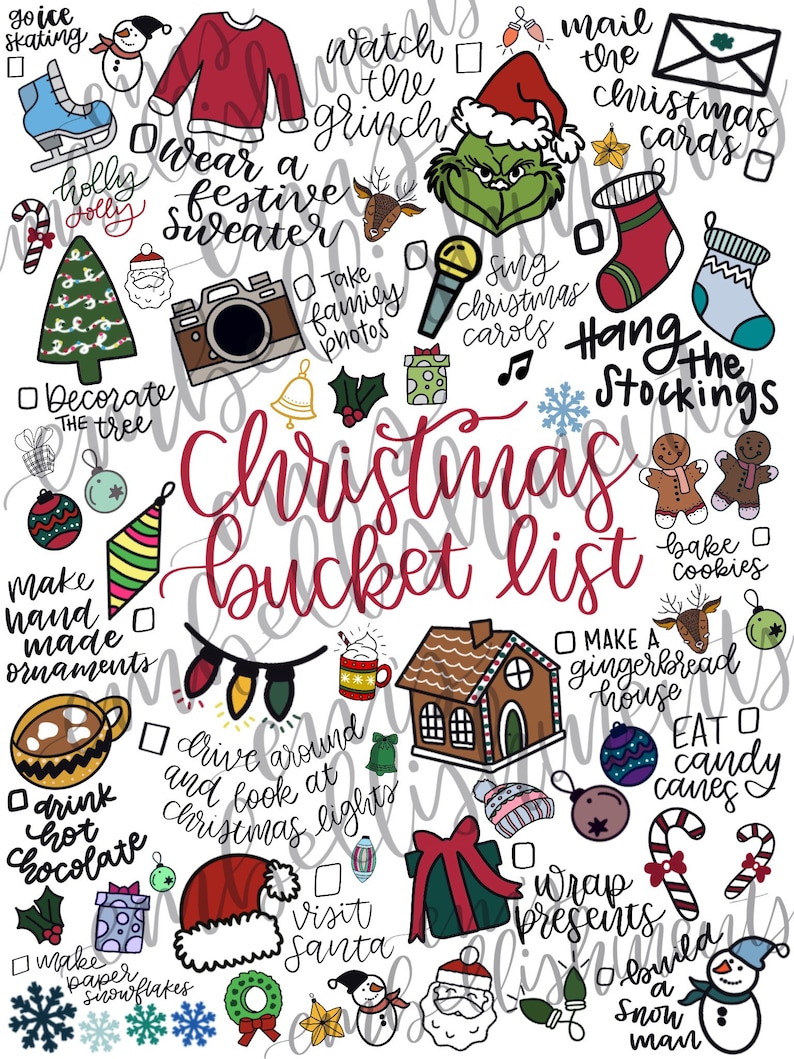 go ice
skating
watch
the
grinch
mail
the
christmas
cards
wear a
festive
sweater
holly
jolly
Take
family
photos
sing
christmas
carols
Hang
the
Stockings
Decorate
THE tree
Christmas
bucket list
bake
cookies
make
hand
made
ornaments
MAKE A
gingerbread
house
drive around
and look at
christmas lights
EAT
candy
canes
drink
hot
chocolate
visit
Santa
wrap
presents
make
paper
snowflakes
build
a
snow
man
em's
embellishments